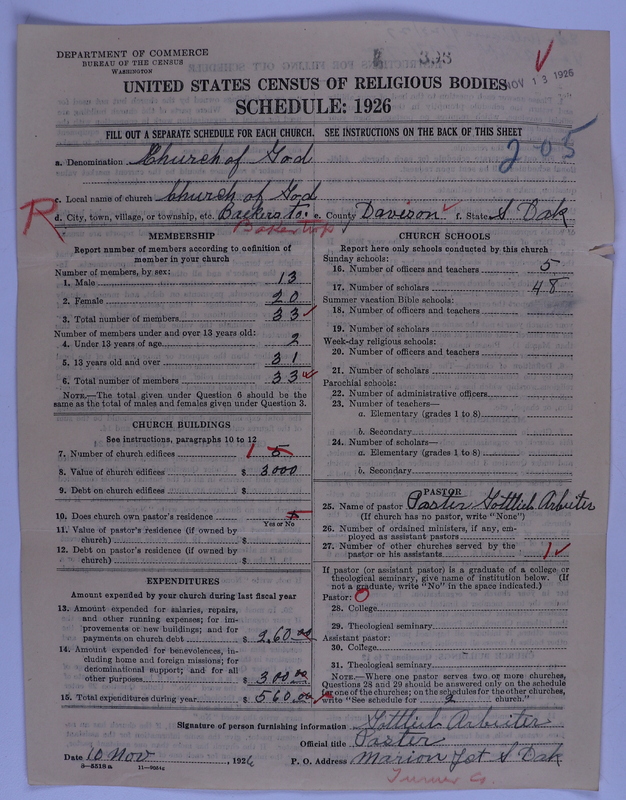 DEPARTMENT OF COMMERCE
BUREAU OF THE CENSUS
WASHINGTON
393
NOV 13 1926
UNITED STATES CENSUS OF RELIGIOUS BODIES
SCHEDULE: 1926
FILL OUT A SEPARATE SCHEDULE FOR EACH CHURCH. SEE INSTRUCTIONS ON THE BACK OF THIS SHEET
205
a. Denomination Church of God
c. Local name of church Church of God
R
d. City, town, village, or township, etc. Bakers To: e. County Davison f. State S. Dak
Baker twp
MEMBERSHIP
Report number of members according to definition of
member in your church
Number of members, by sex:
1. Male 13
2. Female 20
3. Total number of members 33
Number of members under and over 13 years old:
4. Under 13 years of age 2
5. 13 years old and over 31
6. Total number of members 33
NOTE.—The total given under Question 6 should be
same as the total of males and females given under Question 3.
CHURCH BUILDINGS
See instructions, paragraphs 10 to 12
7. Number of church edifices 1
8. Value of church edifices $ 3000
9. Debt on church edifices $
10. Does church own pastor's residence
Yes or No
11. Value of pastor's residence (if owned by
church) $
12. Debt on pastor's residence (if owned by
church) $
EXPENDITURES
Amount expended by your church during last fiscal year
13. Amount expended for salaries, repairs,
and other running expenses; for im-
provements or new buildings; and for
payments on church debt $ 260.00
14. Amount expended for benevolences, in-
cluding home and foreign missions; for
denominational support; and for all
other purposes $ 300.00
15. Total expenditures during year $ 560.00
CHURCH SCHOOLS
Report here only schools conducted by this church
Sunday schools:
16. Number of officers and teachers 5
17. Number of scholars 48
Summer vacation Bible schools:
18. Number of officers and teachers
19. Number of scholars
Week-day religious schools:
20. Number of officers and teachers
21. Number of scholars
Parochial schools:
22. Number of administrative officers
23. Number of teachers—
a. Elementary (grades 1 to 8)
b. Secondary
24. Number of scholars—
a. Elementary (grades 1 to 8)
b. Secondary
PASTOR
25. Name of pastor Pastor Gottlieb Arbeiter
(If church has no pastor, write "None")
26. Number of ordained ministers, if any, em-
ployed as assistant pastors
27. Number of other churches served by the
pastor or his assistants 1
If pastor (or assistant pastor) is a graduate of a college or
theological seminary, give name of institution below. (If
not a graduate, write "No" in the space indicated.)
Pastor: O
28. College
29. Theological seminary
Assistant pastor:
30. College
31. Theological seminary
NOTE.—Where one pastor serves two or more churches,
Questions 28 and 29 should be answered only on the schedule
for one of the churches; on the schedules for the other churches,
write "See schedule for 2 church."
Signature of person furnishing information Gottlieb Arbeiter
Official title Paster
Date 10 Nov, 1926 P. O. Address Marion Jct S Dak
8—5518a 11—9034c
Turner Co.